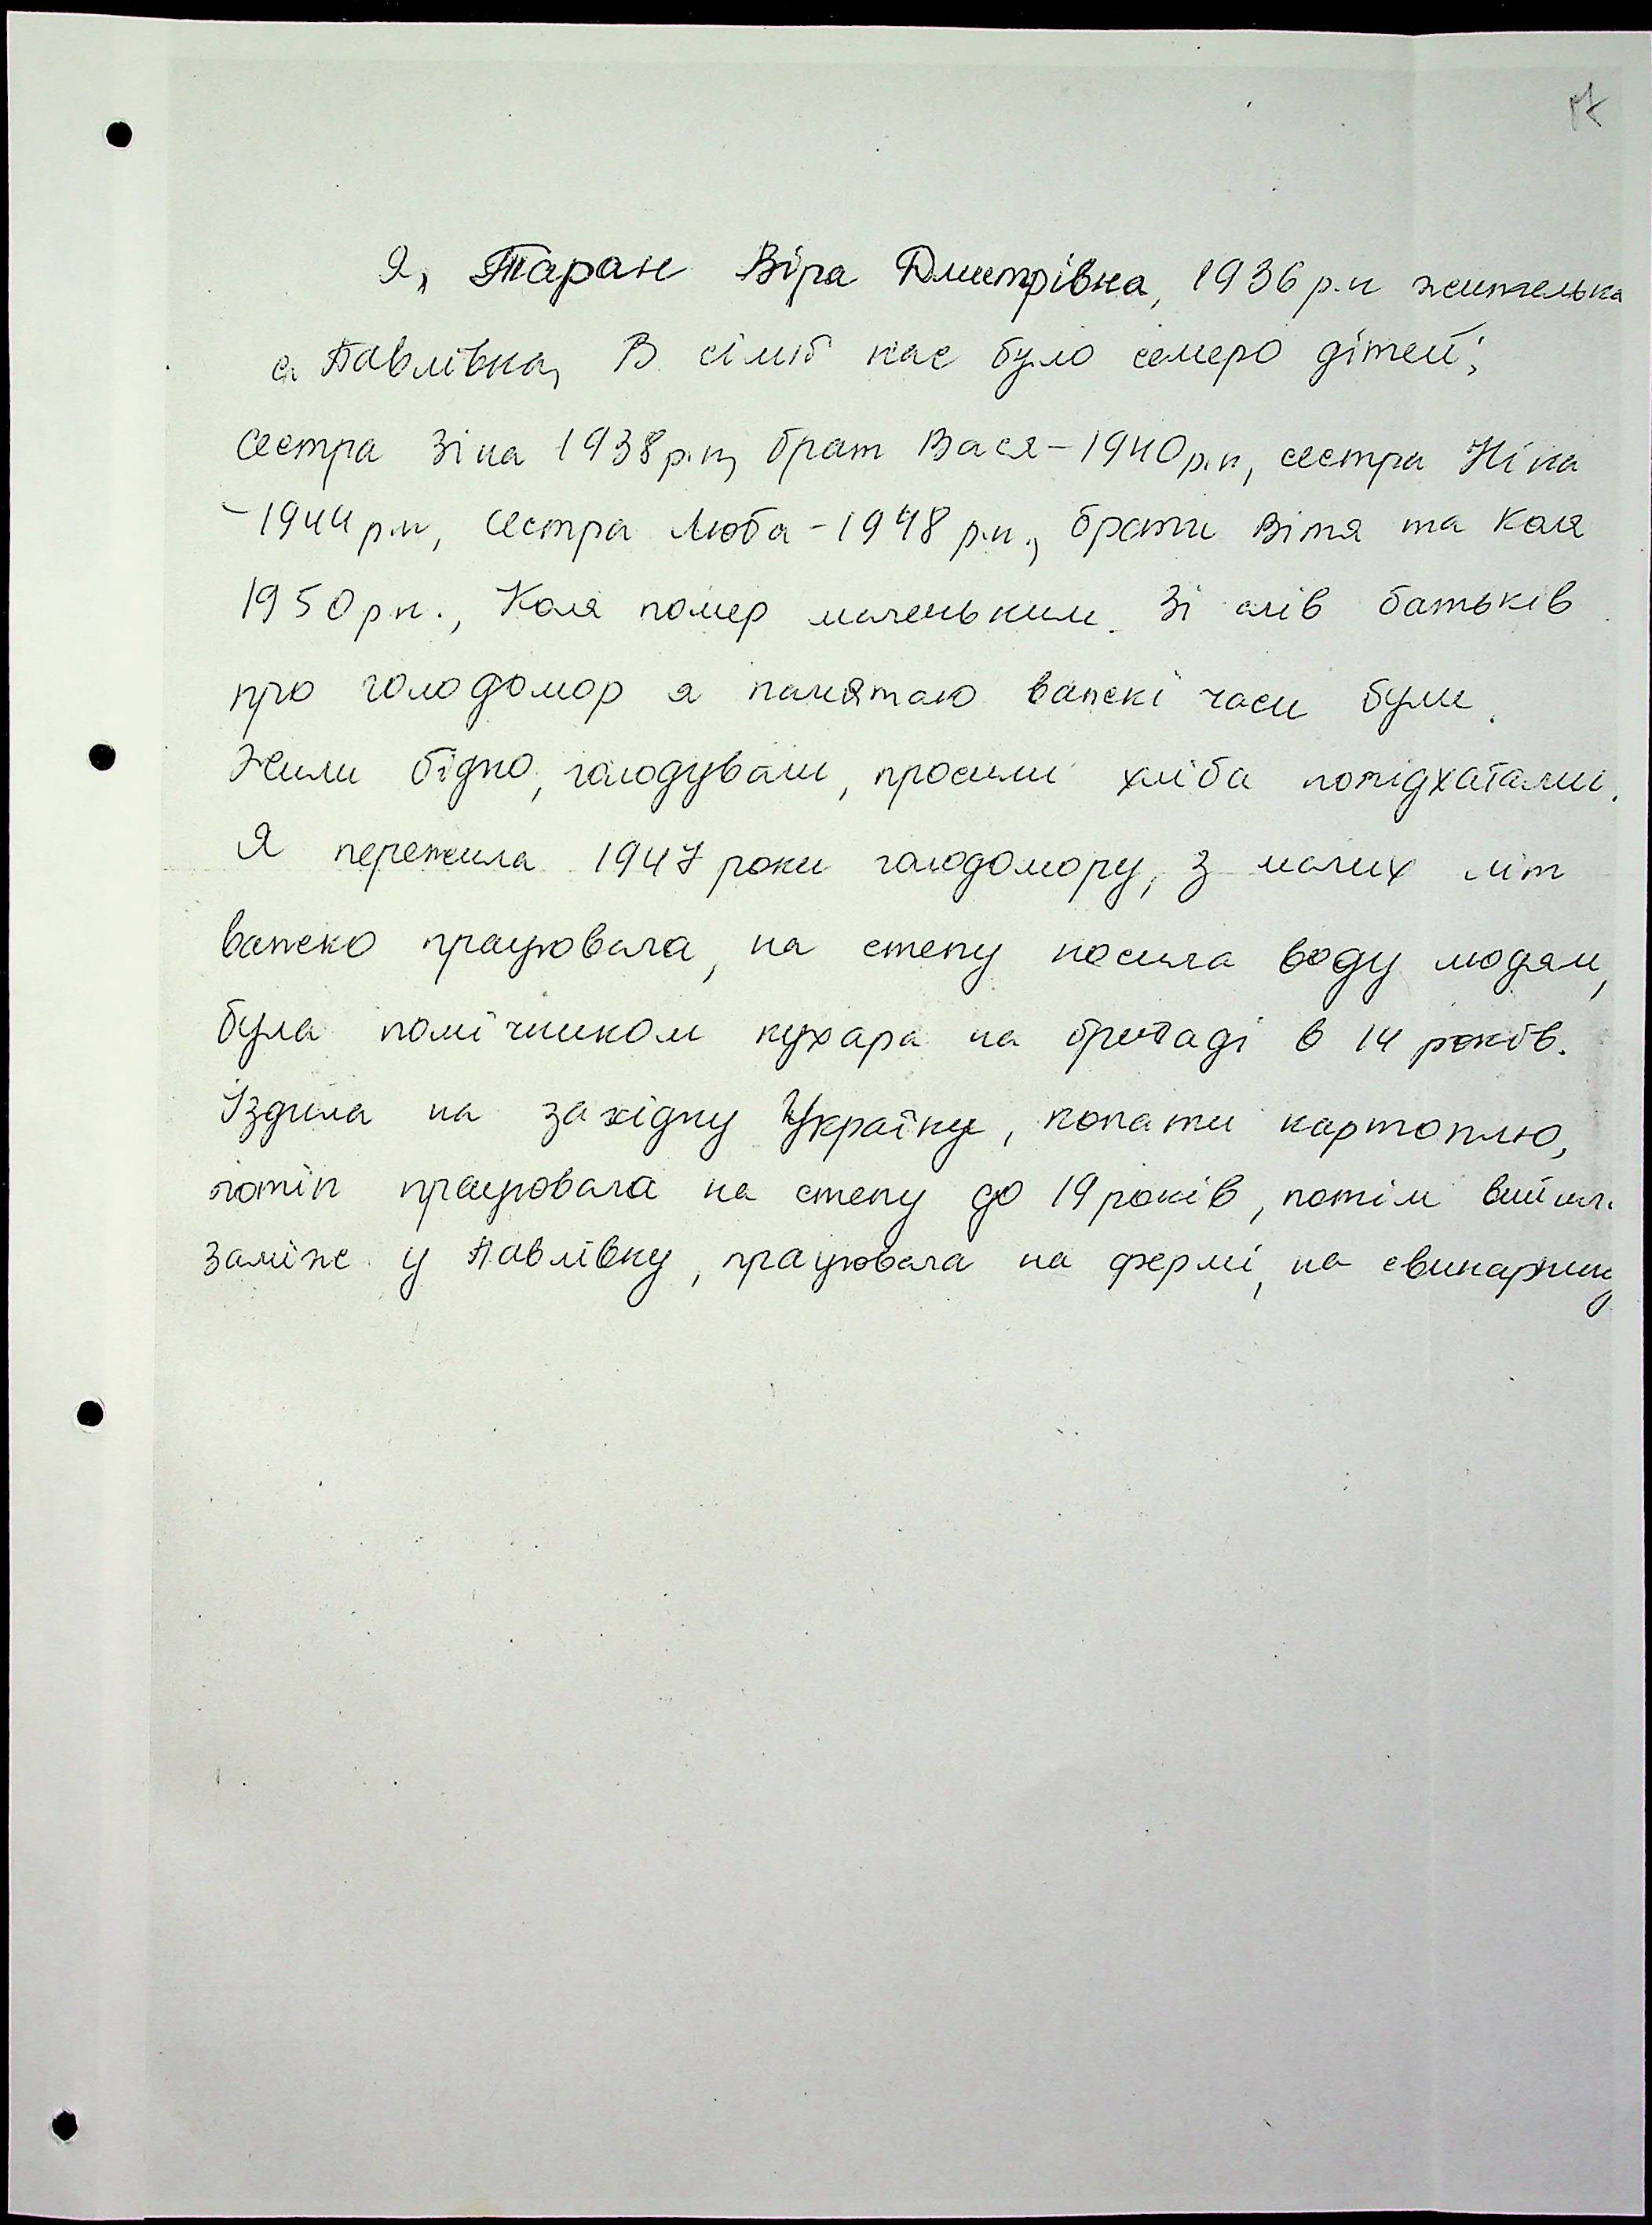 Я, Таран Віра Дмитрівна, 1936 р.н жителька
с. Павлівка, В сімї нас було семеро дітей;
сестра Зіна 1938р.н, брат Вася-1940р.н, сестра Ніна
-1944р.н, сестра Люба-1948 р.н., брати Вітя та Коля
1950р н., Коля помер маленьким. Зі слів батьків
про голодомор я памятаю важкі часи були.
Жили бідно, голодували, просили хліба попідхатами.
Я пережила 1947 роки голодомору, з малих літ
важко працювала, на степу носила воду людям,
була помічником кухара на бригаді в 14 років.
Їздила на західну Україну, копати картоплю,
потім працювала на степу до 19 років, потім вийшл
заміж у Павлівку, працювала на фермі, на свинарнику